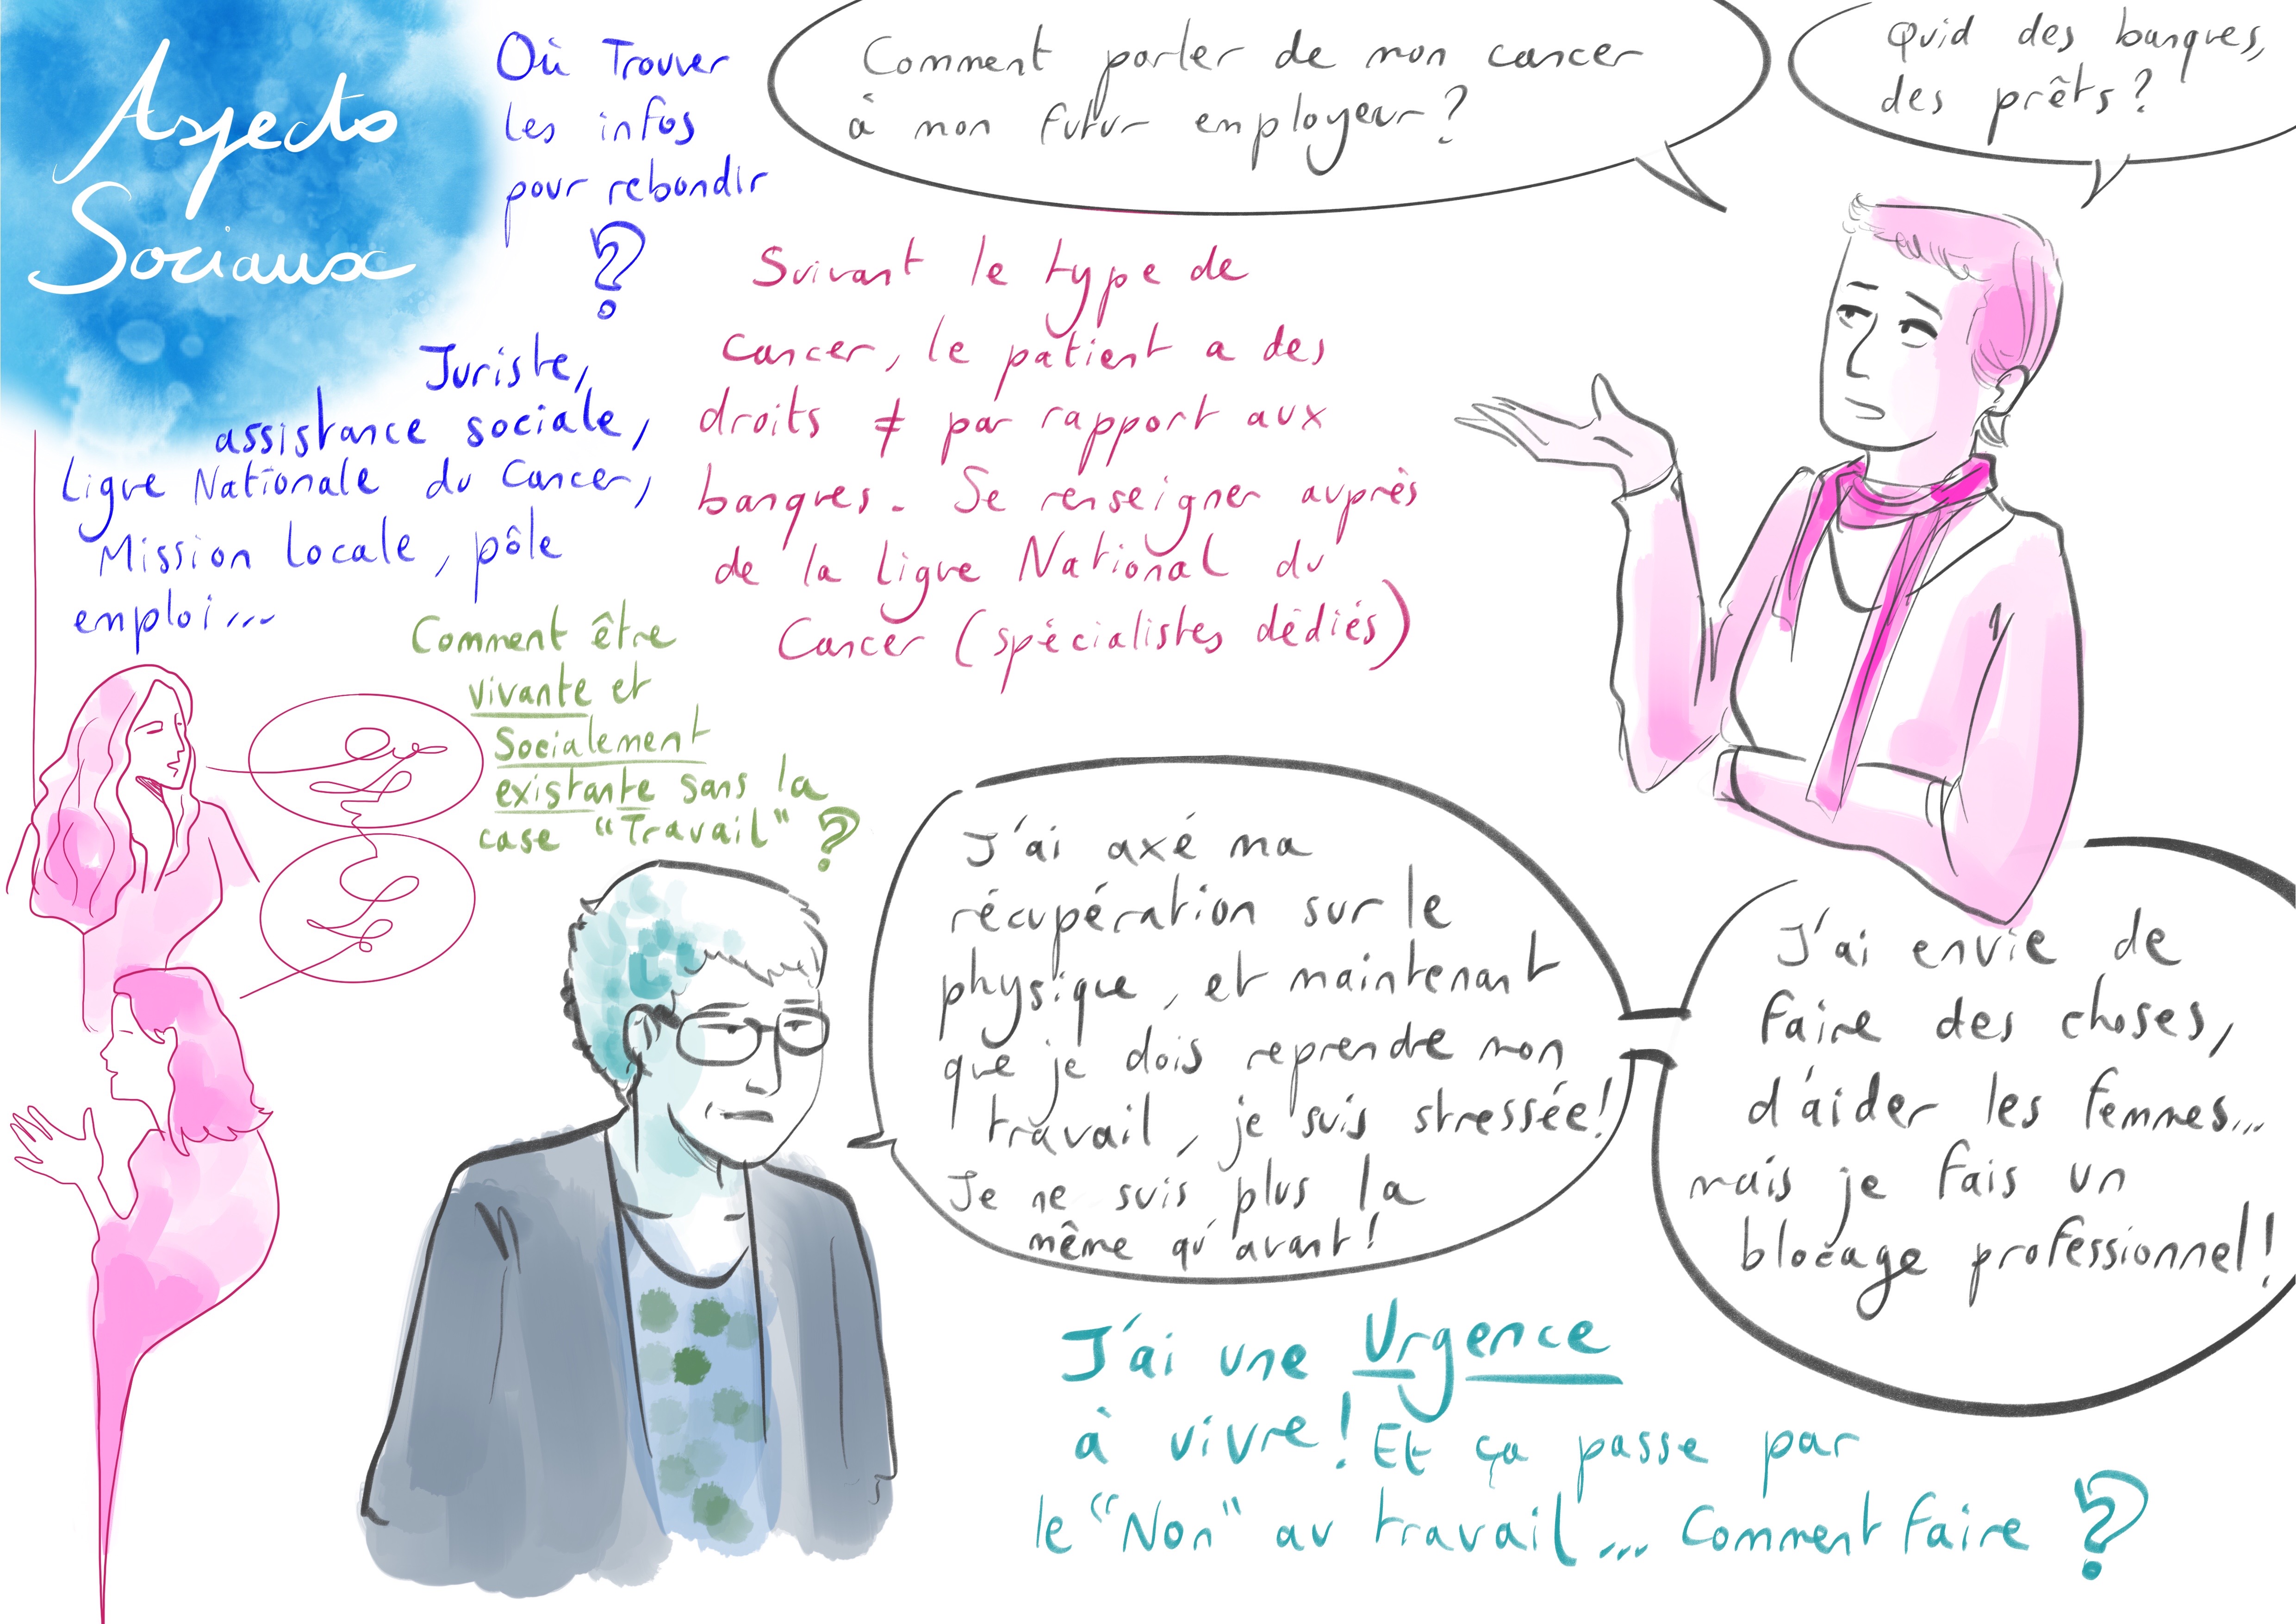 Aspects
Sociaux
Où Trouver
les infos
pour rebondir
?
Juriste,
assistance sociale,
Ligue Nationale du Cancer,
Mission Locale, pôle
emploi...
Comment parler de mon cancer
à mon futur employeur?
Quid des banques,
des prêts?
Suivant le type de
Cancer, le patient a des
droits ≠ par rapport aux
banques. Se renseigner auprès
de la ligue National du
Cancer (spécialistes dédiés)
Comment être
vivante et
Socialement
existante sans la
case "Travail" ?
J'ai axé ma
récupération sur le
physique, et maintenant
que je dois reprendre mon
travail, je suis stressée!
Je ne suis plus la
même qu'avant!
J'ai envie de
faire des choses,
d'aider les femmes...
mais je fais un
blocage professionnel!
J'ai une Urgence
à vivre! Et ça passe par
le "Non" au travail... Comment faire ?